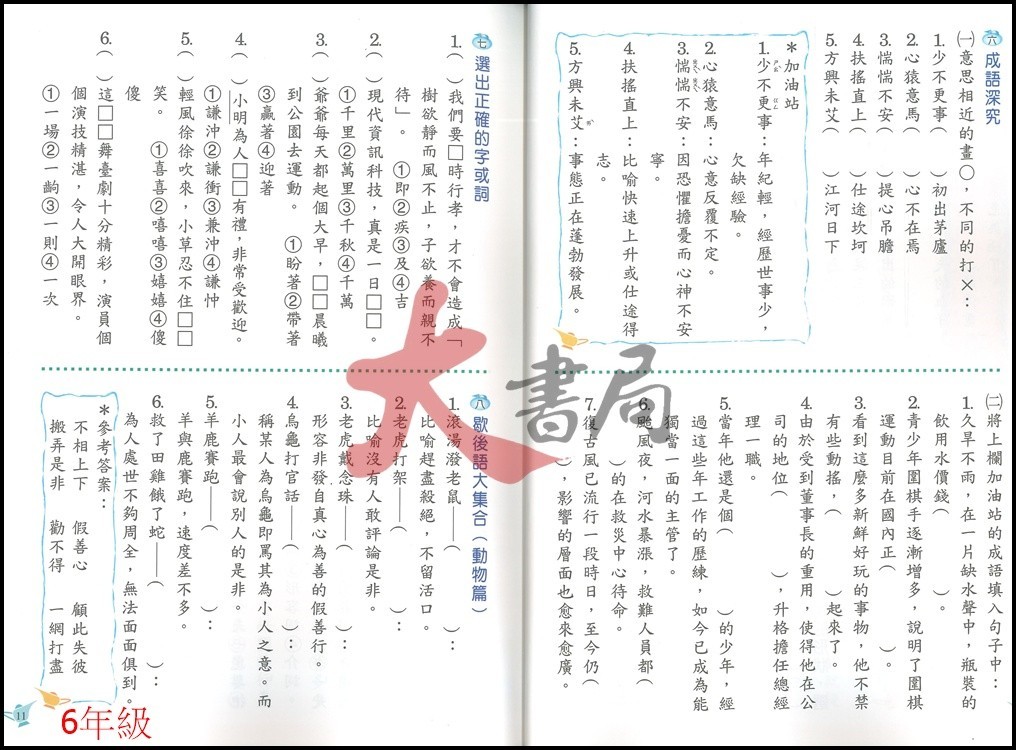 六 成語探究
㈠意思相近的畫○，不同的打×：
1.少不更事（　）初出茅廬
2.心猿意馬（　）心不在焉
3.惴惴不安（　）提心吊膽
4.扶搖直上（　）仕途坎坷
5.方興未艾（　）江河日下
＊加油站
1.少不更事：年紀輕，經歷世事少，
欠缺經驗。
2.心猿意馬：心意反覆不定。
3.惴惴不安：因恐懼擔憂而心神不安
寧。
4.扶搖直上：比喻快速上升或仕途得
志。
5.方興未艾：事態正在蓬勃發展。
㈡將上欄加油站的成語填入句子中：
1.久旱不雨，在一片缺水聲中，瓶裝的
飲用水價錢（　）。
2.青少年圍棋手逐漸增多，說明了圍棋
運動目前在國內正（　）。
3.看到這麼多新鮮好玩的事物，他不禁
有些動搖，（　）起來了。
4.由於受到董事長的重用，使得他在公
司的地位（　），升格擔任總經
理一職。
5.當年他還是個（　）的少年，經
過這些年工作的歷練，如今已成為能
獨當一面的主管了。
6.颱風夜，河水暴漲，救難人員都（
）的在救災中心待命。
7.復古風已流行一段時日，至今仍（
），影響的層面也愈來愈廣。
七 選出正確的字或詞
1.（　）我們要□時行孝，才不會造成「
樹欲靜而風不止，子欲養而親不
待」。　①即②疾③及④吉
2.（　）現代資訊科技，真是一日□□。
①千里②萬里③千秋④千萬
3.（　）爺爺每天都起個大早，□□晨曦
到公園去運動。　①盼著②帶著
③贏著④迎著
4.（　）小明為人□□有禮，非常受歡迎。
①謙沖②謙衝③兼沖④謙忡
5.（　）輕風徐徐吹來，小草忍不住□□
笑。　①喜喜②嘻嘻③嬉嬉④傻
傻
6.（　）這□□舞臺劇十分精彩，演員個
個演技精湛，令人大開眼界。
①一場②一齣③一則④一次
八 歇後語大集合（動物篇）
1.滾湯潑老鼠——（　）：
比喻趕盡殺絕，不留活口。
2.老虎打架——（　）：
比喻沒有人敢評論是非。
3.老虎戴念珠——（　）：
形容非發自真心為善的假善行。
4.烏龜打官話——（　）：
稱某人為烏龜即罵其為小人之意。而
小人最會說別人的是非。
5.羊鹿賽跑——（　）：
羊與鹿賽跑，速度差不多。
6.救了田雞餓了蛇——（　）：
為人處世不夠周全，無法面面俱到。
＊參考答案：
不相上下　假善心　顧此失彼
搬弄是非　勸不得　一網打盡
11
6年級
大書局